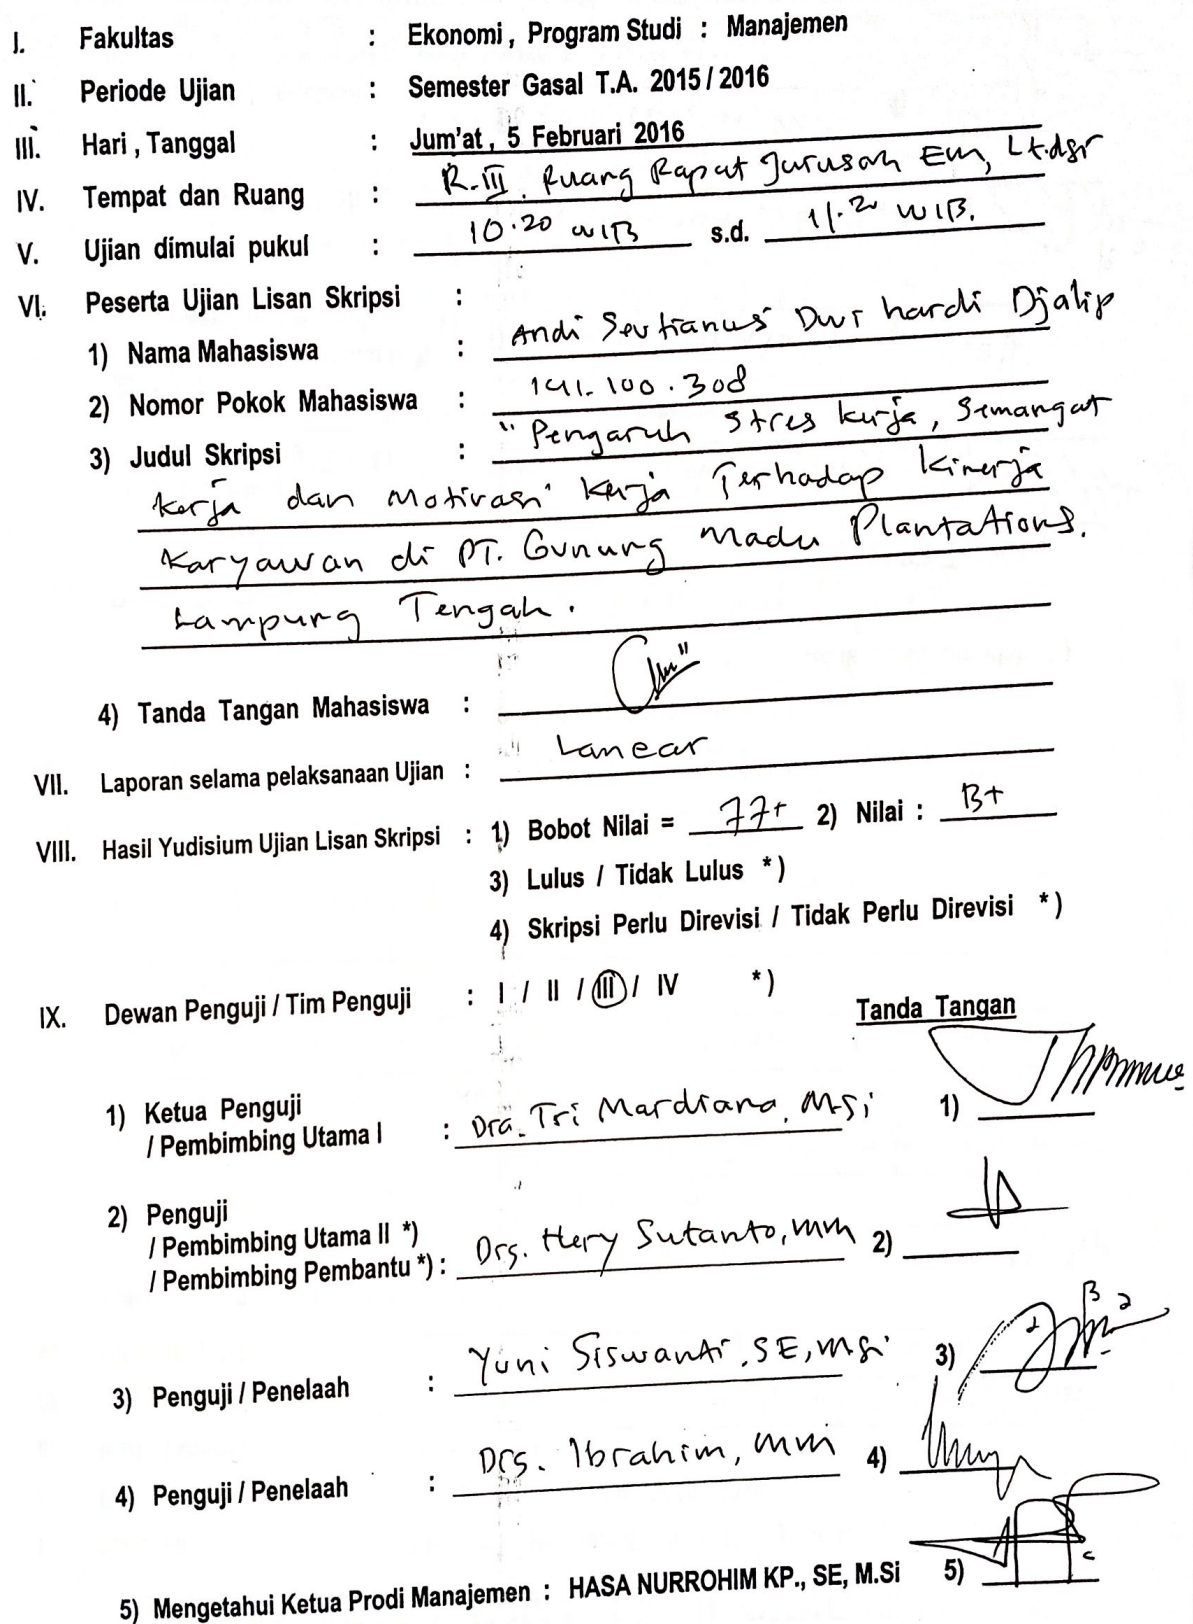 I. Fakultas : Ekonomi, Program Studi : Manajemen
II. Periode Ujian : Semester Gasal T.A. 2015 / 2016
III. Hari, Tanggal : Jum'at, 5 Februari 2016
IV. Tempat dan Ruang : R.III. Ruang Rapat Jurusan EM, Lt.dsr
V. Ujian dimulai pukul : 10.20 WIB s.d. 11.20 WIB.
VI. Peserta Ujian Lisan Skripsi :
1) Nama Mahasiswa : Andi Hardi Djalip
2) Nomor Pokok Mahasiswa : 141.100.308
3) Judul Skripsi : "Pengaruh Stres kerja, Semangat
Kerja dan Motivasi Kerja Terhadap Kinerja
Karyawan di PT. Gunung Madu Plantations.
Lampung Tengah.
4) Tanda Tangan Mahasiswa :
VII. Laporan selama pelaksanaan Ujian : Lancar
VIII. Hasil Yudisium Ujian Lisan Skripsi : 1) Bobot Nilai = 77+ 2) Nilai : B+
3) Lulus / Tidak Lulus *)
4) Skripsi Perlu Direvisi / Tidak Perlu Direvisi *)
IX. Dewan Penguji / Tim Penguji : I / II / III / IV *)
Tanda Tangan
1) Ketua Penguji
/ Pembimbing Utama I : Dra. Tri Mardiana, M.Si 1)
2) Penguji
/ Pembimbing Utama II *)
/ Pembimbing Pembantu *) : Drs. Hery Sutanto, MM 2)
3) Penguji / Penelaah : Yuni Siswanti, SE, MSi 3)
4) Penguji / Penelaah : Drs. Ibrahim, MM 4)
5) Mengetahui Ketua Prodi Manajemen : HASA NURROHIM KP., SE, M.Si 5)